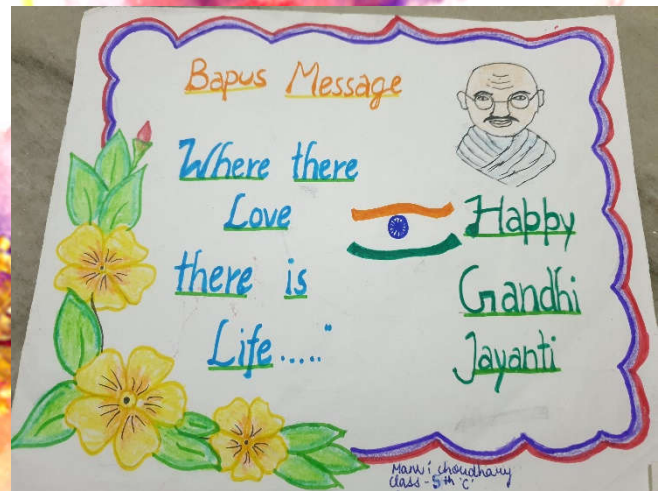 Bapus Message
Where there
Love
there is
Life....."
Happy
Gandhi
Jayanti
Manvi Choudhary
Class - 5th 'C'